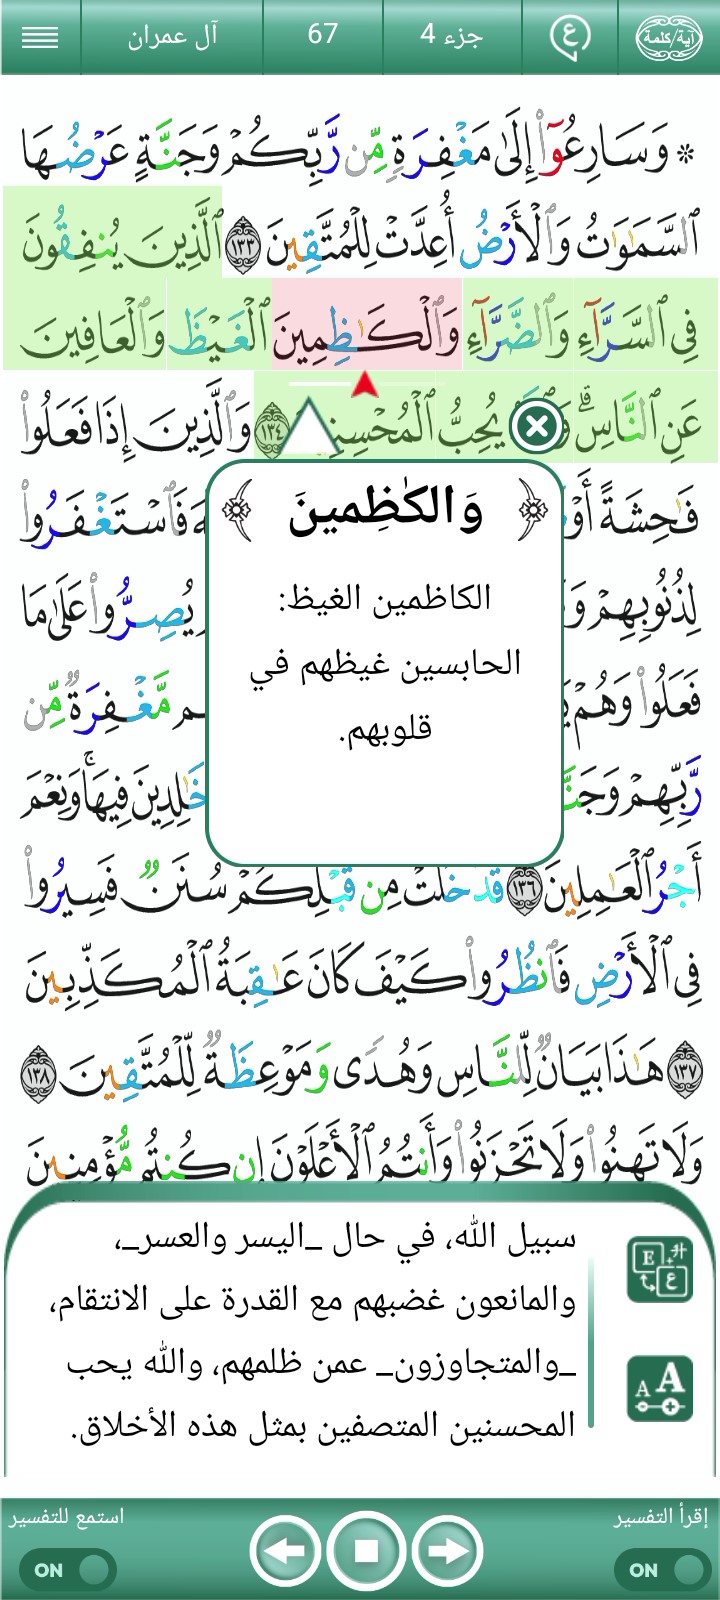 آية/كلمة
ع
جزء 4
67
آل عمران
* وَسَارِعُوٓا۟ إِلَىٰ مَغْفِرَةٍ مِّن رَّبِّكُمْ وَجَنَّةٍ عَرْضُهَا
ٱلسَّمَـٰوَٰتُ وَٱلْأَرْضُ أُعِدَّتْ لِلْمُتَّقِينَ ١٣٣ ٱلَّذِينَ يُنفِقُونَ
فِى ٱلسَّرَّآءِ وَٱلضَّرَّآءِ وَٱلْكَـٰظِمِينَ ٱلْغَيْظَ وَٱلْعَافِينَ
عَنِ ٱلنَّاسِ ۗ يُحِبُّ ٱلْمُحْسِنِ ١٣٤ وَٱلَّذِينَ إِذَا فَعَلُوا۟
وَالكَٰظِمينَ
الكاظمين الغيظ:
الحابسين غيظهم في
قلوبهم.
فَـٰحِشَةً أَوْ فَٱسْتَغْفَرُوا۟
لِذُنُوبِهِمْ يُصِرُّوا۟ عَلَىٰ مَا
فَعَلُوا۟ وَهُمْ مَّغْفِرَةٌ مِّن
رَّبِّهِمْ خَـٰلِدِينَ فِيهَا ۚ وَنِعْمَ
أَجْرُ ٱلْعَـٰمِلِينَ ١٣٦ قَدْ خَلَتْ مِن قَبْلِكُمْ سُنَنٌ فَسِيرُوا۟
فِى ٱلْأَرْضِ فَٱنظُرُوا۟ كَيْفَ كَانَ عَـٰقِبَةُ ٱلْمُكَذِّبِينَ
١٣٧ هَـٰذَا بَيَانٌ لِّلنَّاسِ وَهُدًى وَمَوْعِظَةٌ لِّلْمُتَّقِينَ ١٣٨
وَلَا تَهِنُوا۟ وَلَا تَحْزَنُوا۟ وَأَنتُمُ ٱلْأَعْلَوْنَ إِن كُنتُم مُّؤْمِنِينَ
سبيل الله، في حال _اليسر والعسر_،
والمانعون غضبهم مع القدرة على الانتقام،
_والمتجاوزون_ عمن ظلمهم، والله يحب
المحسنين المتصفين بمثل هذه الأخلاق.
إقرأ التفسير
استمع للتفسير
ON
ON